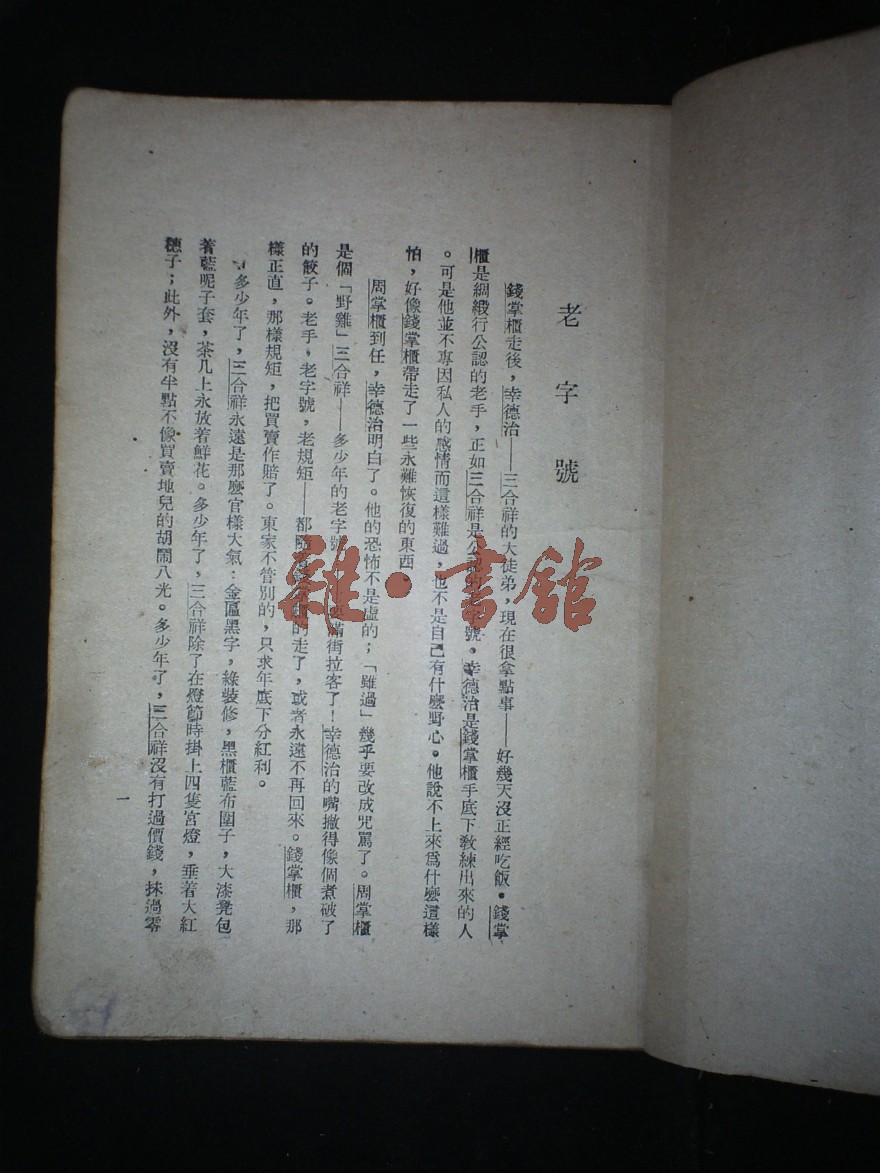 老字號
錢掌櫃走後，幸德治——三合祥的大徒弟，現在很拿點事——好幾天沒正經吃飯。錢掌
櫃是綢緞行公認的老手，正如三合祥是公認的字號。幸德治是錢掌櫃手底下教練出來的人
。可是他並不專因私人的感情而這樣難過，也不是自己有什麼野心。他說不上來爲什麼這樣
怕，好像錢掌櫃帶走了一些永難恢復的東西。
周掌櫃到任，幸德治明白了。他的恐怖不是虛的；「難過」幾乎要改成咒罵了。周掌櫃
是個「野雞」三合祥——多少年的老字號要滿街拉客了！幸德治的嘴撇得像個煮破了
的餃子。老手，老字號，老規矩——都隨的走了，或者永遠不再回來。錢掌櫃，那
樣正直，那樣規矩，把買賣作賠了。東家不管別的，只求年底下分紅利。
多少年了，三合祥永遠是那麼官樣大氣：金匾黑字，綠裝修，黑櫃藍布圍子，大漆凳包
着藍呢子套，茶几上永放着鮮花。多少年了，三合祥除了在燈節時掛上四隻宮燈，垂着大紅
穗子；此外，沒有半點不像買賣地兒的胡鬧八光。多少年了，三合祥沒有打過價錢，抹過零
一
雜·書館